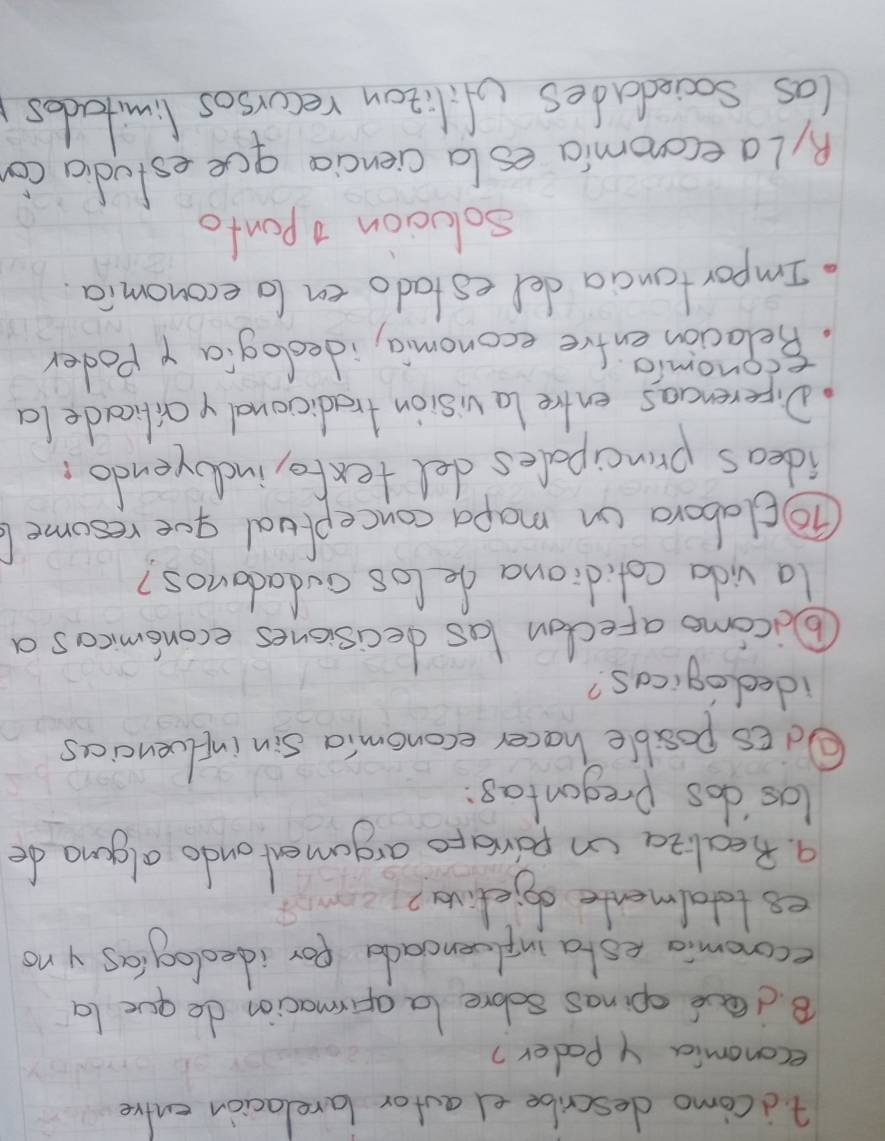 7.¿Como describe el autor la relación entre
economía y Poder?
8.¿Qué opinas sobre la afirmación de que la
economía está influenciada por ideologías y no
es totalmente objetiva?
9. Realiza un párrafo argumentando alguna de
las dos preguntas:
a ¿Es posible hacer economía sin influencias
ideológicas?
b ¿cómo afectan las decisiones económicas a
la vida cotidiana de los ciudadanos?
10 Elabora un mapa conceptual que resume l
ideas principales del texto, incluyendo:
• Diferencias entre la visión tradicional y critica de la
economía.
• Relación entre economía, ideología y Poder
• Importancia del estado en la economía.
Solución 1 Punto
R/ La economía es la ciencia que estudia cóm
las sociedades utilizan recursos limitados